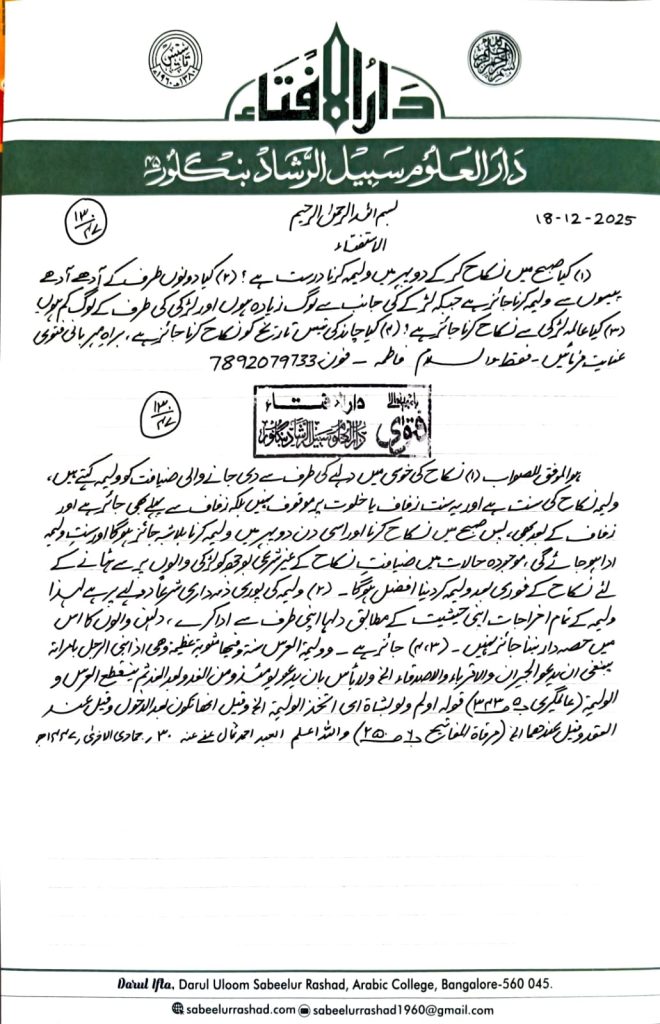 دَارُ الإِفْتَاء
دَارُ العُلُوم سَبِیلُ الرَّشَاد بنگلور ۴۵
۱۳۰/۴۷
بسم اللہ الرحمن الرحیم
18-12-2025
الاستفتاء
(۱) کیا صبح میں نکاح کرکے دوپہر میں ولیمہ کرنا درست ہے؟ (۲) کیا دونوں طرف کے آدھے آدھے
پیسوں سے ولیمہ کرنا جائز ہے جبکہ لڑکے کی جانب سے لوگ زیادہ ہوں اور لڑکی کی طرف کے لوگ کم ہوں
(۳) کیا عالمہ لڑکی سے نکاح کرنا جائز ہے؟ (۴) کیا چاند کی تیس تاریخ کو نکاح کرنا جائز ہے، براہ مہربانی فتوی
عنایت فرمائیں - فقط والسلام فاطمہ - فون 7892079733
۱۳۰/۴۷
دارالافتاء
دارالعلوم سبیل الرشاد بنگلور
فتوی
ہوالموفق للصواب (۱) نکاح کی خوشی میں دولہے کی طرف سے دی جانے والی ضیافت کو ولیمہ کہتے ہیں،
ولیمہ نکاح کی سنت ہے اور یہ سنت زفاف یا خلوت پر موقوف نہیں بلکہ زفاف سے پہلے بھی جائز ہے اور
زفاف کے بعد بھی، پس صبح میں نکاح کرنا اور اسی دن دوپہر میں ولیمہ کرنا بلاشبہ جائز ہوگا اور سنت ولیمہ
ادا ہوجائے گی، موجودہ حالات میں ضیافت نکاح کے غیر شرعی بوجھ کو لڑکی والوں پر سے ہٹانے کے
لئے نکاح کے فوری بعد ولیمہ کردینا افضل ہوگا - (۲) ولیمہ کی پوری ذمہ داری شرعاً دولہے پر ہے لہذا
ولیمہ کے تمام اخراجات اپنی حیثیت کے مطابق دلہا اپنی طرف سے ادا کرے، دلہن والوں کا اس
میں حصہ دار بننا جائز نہیں - (۳،۴) جائز ہے - وولیمۃ العرس سنۃ وفیھا مثوبۃ عظیمۃ وھی اذا بنی الرجل بامرأتہ
ینبغی ان یدعو الجیران والاقرباء والاصدقاء الخ ولا بأس بان یدعو یومئذ ومن الغد وبعد الغد ثم ینقطع العرس و
الولیمۃ (عالمگیری ج۵ ص۳۴۳) قولہ اولم ولو بشاۃ ای اتخذ الولیمۃ الخ وقیل انھا تکون بعد الدخول وقیل عند
العقد وقیل عندھما الخ (مرقاۃ المفاتیح ج۶ ص۲۵۰) واللہ اعلم العبد احمد عفی عنہ ۳۰ر جمادی الاخریٰ ۱۴۴۷ھ
Darul Ifta, Darul Uloom Sabeelur Rashad, Arabic College, Bangalore-560 045.
sabeelurrashad.com sabeelurrashad1960@gmail.com